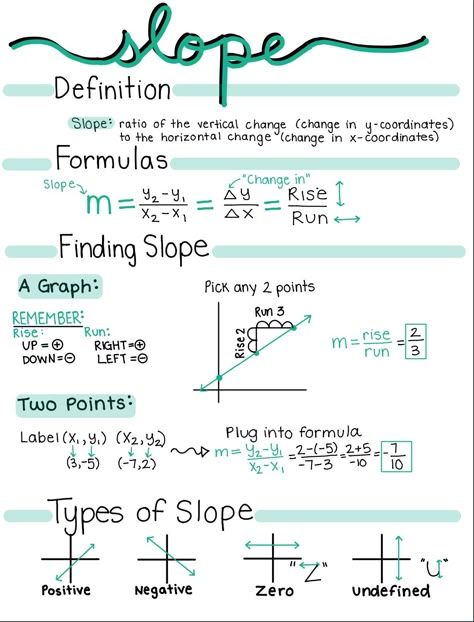 slope
Definition
Slope: ratio of the vertical change (change in y-coordinates)
to the horizontal change (change in x-coordinates)
Formulas
Slope
"Change in"
m = y₂-y₁/x₂-x₁ = Δy/Δx = Rise/Run
Finding Slope
A Graph:
Pick any 2 points
REMEMBER:
Rise: Run:
UP = ⊕ RIGHT=⊕
DOWN=⊖ LEFT=⊖
Run 3
Rise 2
m = rise/run = 2/3
Two Points:
Label (x₁,y₁) (x₂,y₂)
(3,-5) (-7,2)
Plug into formula
m = y₂-y₁/x₂-x₁ = 2-(-5)/-7-3 = 2+5/-10 = -7/10
Types of Slope
Positive
Negative
Zero
"Z"
undefined
"U"